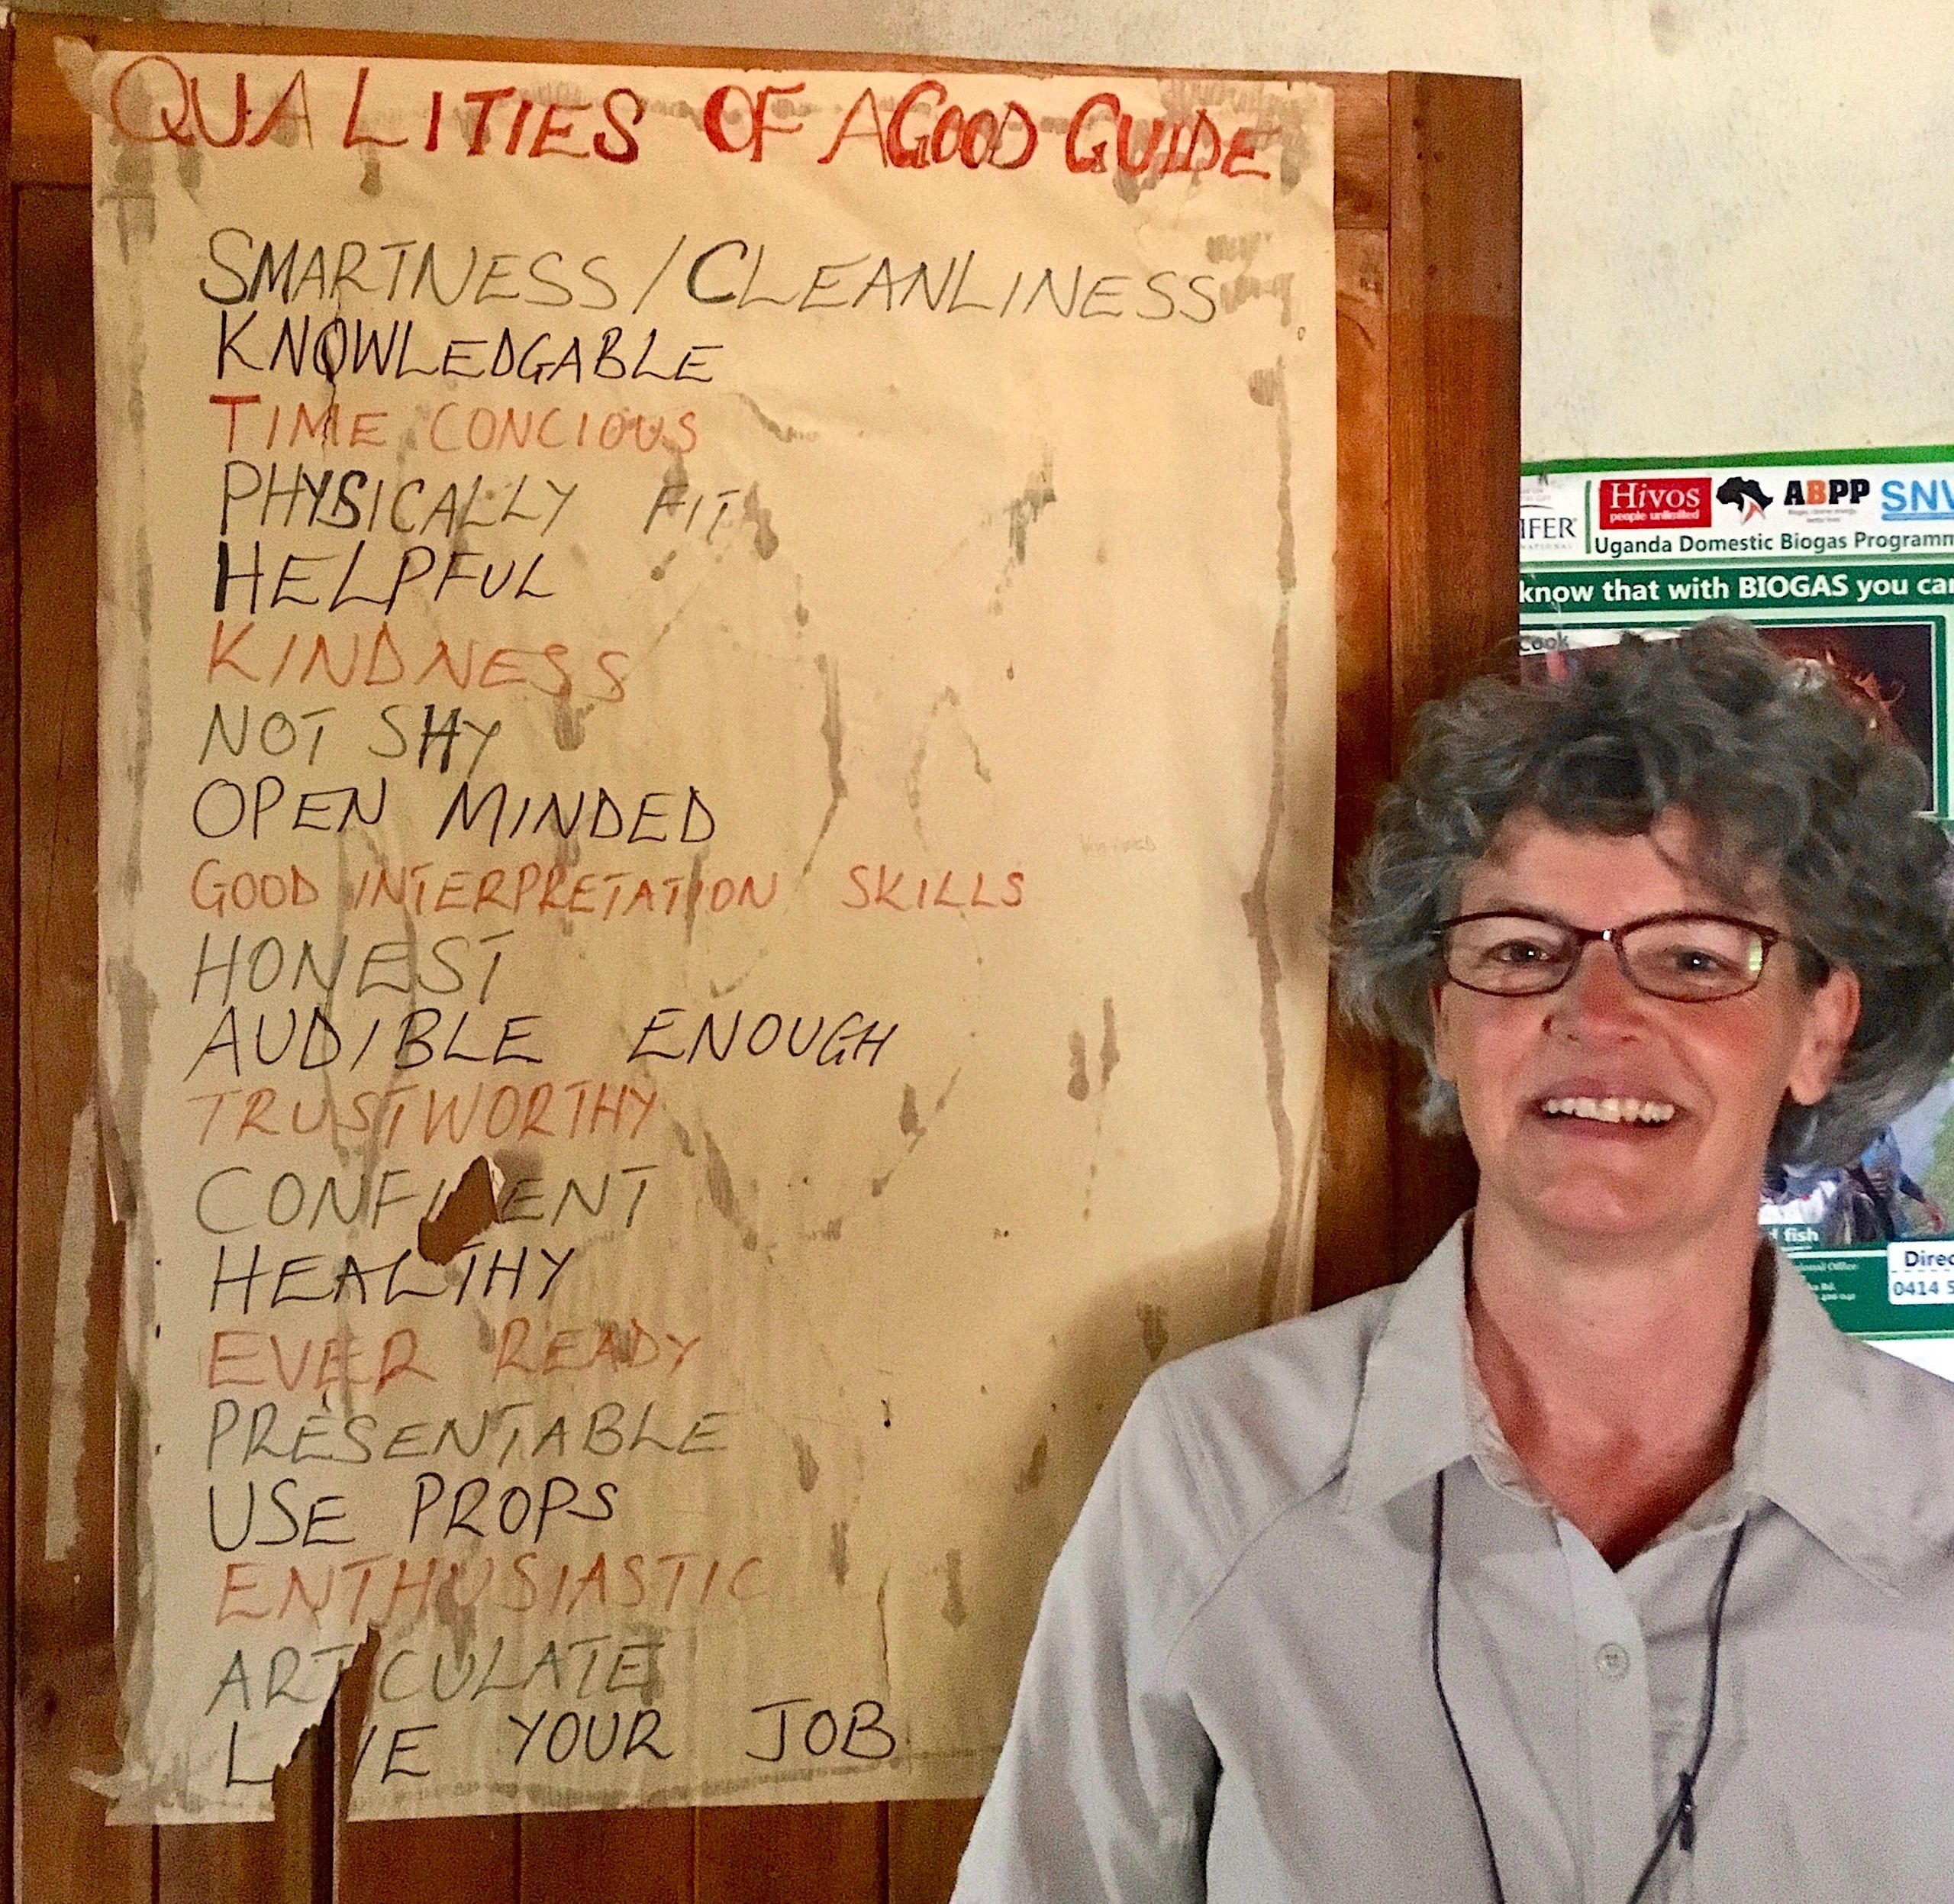 QUALITIES OF A GOOD GUIDE
SMARTNESS/CLEANLINESS
KNOWLEDGABLE
TIME CONCIOUS
PHYSICALLY FIT
HELPFUL
KINDNESS
NOT SHY
OPEN MINDED
GOOD INTERPRETATION SKILLS
HONEST
AUDIBLE ENOUGH
TRUSTWORTHY
CONFI ENT
HEALTHY
EVER READY
PRESENTABLE
USE PROPS
ENTHUSIASTIC
ART CULATE
L VE YOUR JOB
IFER
Hivos
people unlimited
ABPP
SNV
Uganda Domestic Biogas Programm
know that with BIOGAS you can
Cook
fish
Direc
0414 5